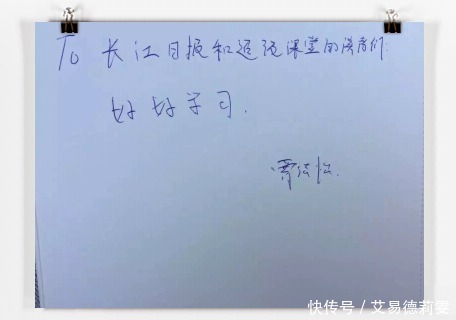 To 长江日报和逅说课堂的读者们:
好好学习.
快传号/艾易德莉雯